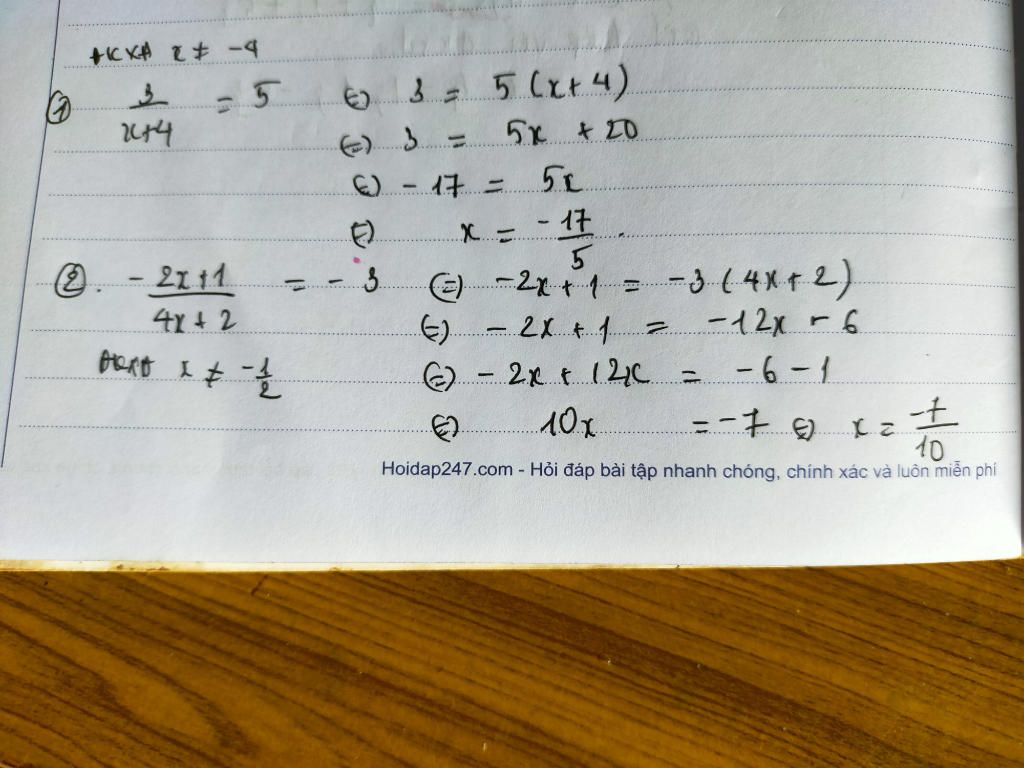 ĐKXĐ x ≠ -4
① 3/(x+4) = 5 (=) 3 = 5(x+4)
(=) 3 = 5x + 20
(=) -17 = 5x
(=) x = -17/5.
②. (-2x+1)/(4x+2) = -3 (=) -2x+1 = -3(4x+2)
(=) -2x+1 = -12x - 6
ĐKXĐ x ≠ -1/2 (=) -2x + 12x = -6-1
(=) 10x = -7 (=) x = -7/10
Hoidap247.com - Hỏi đáp bài tập nhanh chóng, chính xác và luôn miễn phí